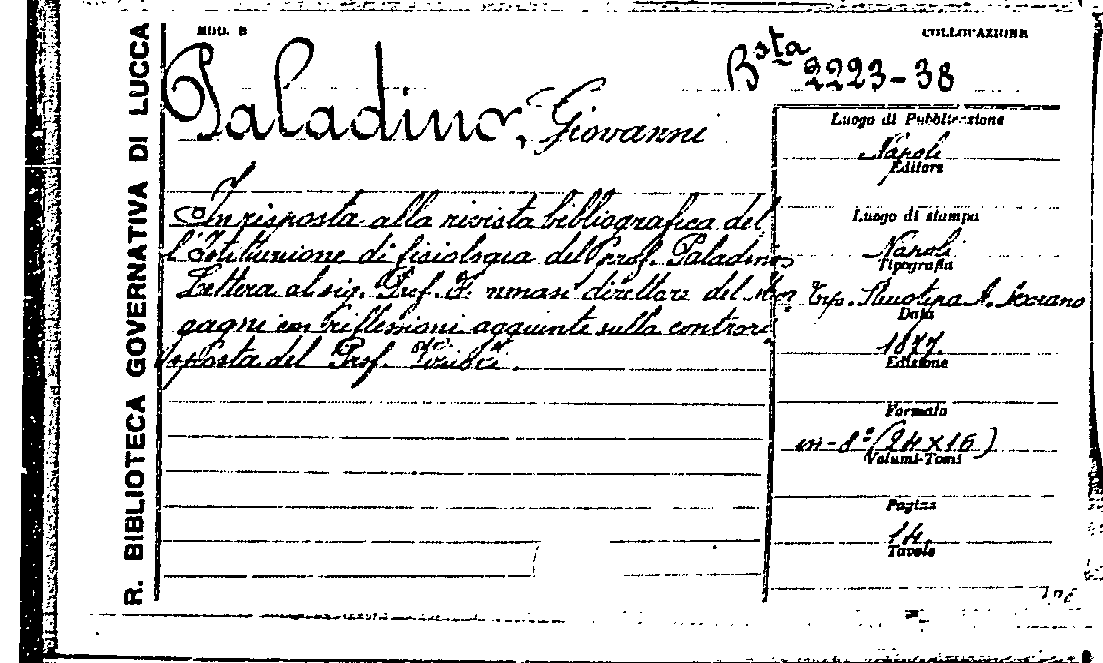 R. BIBLIOTECA GOVERNATIVA DI LUCCA
MOD. B
COLLOCAZIONE
Bsta 2223-38
Paladino, Giovanni
Luogo di Pubblicazione
Napoli
Editore
In risposta alla rivista bibliografica del
l'Istituzione di fisiologia del Prof. Paladino
Lettera al sig. Prof. direttore del
gagni con riflessioni aggiunte sulla contrari
sposta del Prof.
Luogo di stampa
Napoli
Tipografia
Tip. A.
Data
1877.
Edizione
Formato
in-8° (24x16)
Volumi-Tomi
Pagine
14.
Tavole